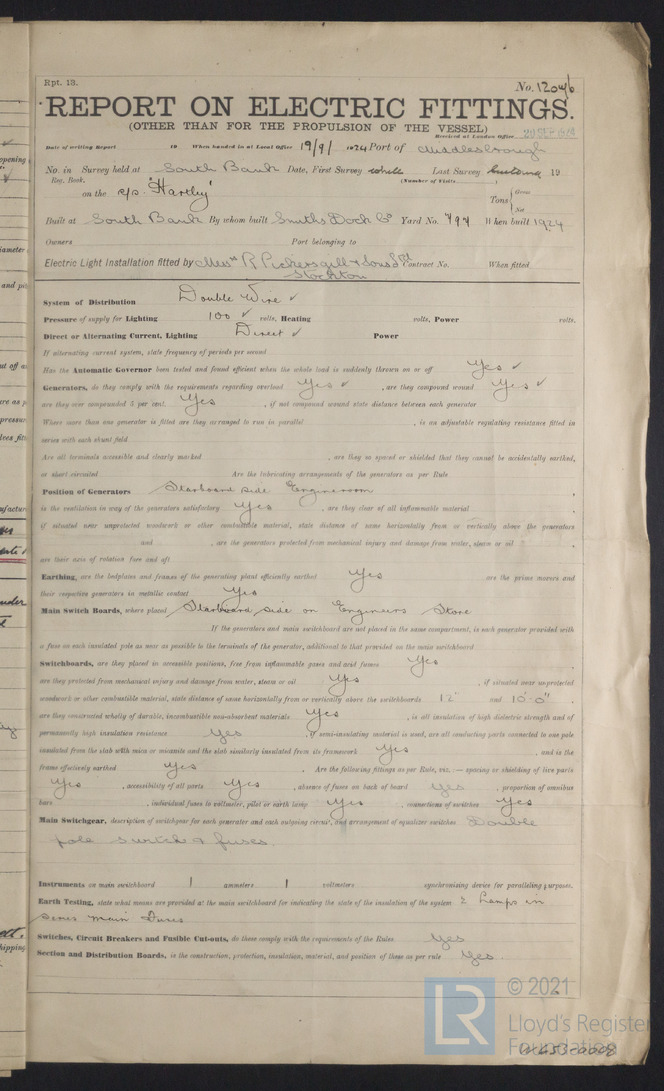 Rpt. 13.
No. 12046
REPORT ON ELECTRIC FITTINGS.
(OTHER THAN FOR THE PROPULSION OF THE VESSEL)
Received at London Office
Date of writing Report 19 When handed in at Local Office 19/9/ 1924 Port of Middlesbrough
No. in Survey held at South Bank Date, First Survey Last Survey 19
Reg. Book. (Number of Visits)
on the "Hartley" Tons { Gross Net
Built at South Bank By whom built Smiths Dock Co Yard No. 797 When built 1924
Owners Port belonging to
Electric Light Installation fitted by Messrs R Pickersgill & Sons Ltd Contract No. When fitted
Stockton
System of Distribution Double Wire ✓
Pressure of supply for Lighting 100 ✓ volts, Heating volts, Power volts.
Direct or Alternating Current, Lighting Direct ✓ Power
If alternating current system, state frequency of periods per second
Has the Automatic Governor been tested and found efficient when the whole load is suddenly thrown on or off Yes ✓
Generators, do they comply with the requirements regarding overload Yes ✓ , are they compound wound Yes ✓
are they over compounded 5 per cent. Yes , if not compound wound state distance between each generator
Where more than one generator is fitted are they arranged to run in parallel , is an adjustable regulating resistance fitted in
series with each shunt field
Are all terminals accessible and clearly marked , are they so spaced or shielded that they cannot be accidentally earthed,
or short circuited Are the lubricating arrangements of the generators as per Rule
Position of Generators Starboard side Engineroom ,
is the ventilation in way of the generators satisfactory Yes , are they clear of all inflammable material
if situated near unprotected woodwork or other combustible material, state distance of same horizontally from or vertically above the generators
and , are the generators protected from mechanical injury and damage from water, steam or oil ,
are their axis of rotation fore and aft
Earthing, are the bedplates and frames of the generating plant efficiently earthed Yes are the prime movers and
their respective generators in metallic contact Yes
Main Switch Boards, where placed Starboard side on Engineers Store
If the generators and main switchboard are not placed in the same compartment, is each generator provided with
a fuse on each insulated pole as near as possible to the terminals of the generator, additional to that provided on the main switchboard
Switchboards, are they placed in accessible positions, free from inflammable gases and acid fumes Yes ,
are they protected from mechanical injury and damage from water, steam or oil Yes , if situated near unprotected
woodwork or other combustible material, state distance of same horizontally from or vertically above the switchboards 12" and 10'-0" ,
are they constructed wholly of durable, incombustible non-absorbent materials Yes , is all insulation of high dielectric strength and of
permanently high insulation resistance Yes , if semi-insulating material is used, are all conducting parts connected to one pole
insulated from the slab with mica or micanite and the slab similarly insulated from its framework Yes , and is the
frame effectively earthed Yes . Are the following fittings as per Rule, viz. :— spacing or shielding of live parts
Yes , accessibility of all parts Yes , absence of fuses on back of board Yes , proportion of omnibus
bars , individual fuses to voltmeter, pilot or earth lamp Yes , connections of switches Yes
Main Switchgear, description of switchgear for each generator and each outgoing circuit, and arrangement of equalizer switches Double
pole switch & fuses
Instruments on main switchboard 1 ammeters 1 voltmeters synchronising device for paralleling purposes.
Earth Testing, state what means are provided at the main switchboard for indicating the state of the insulation of the system 2 Lamps in
series main Fuses
Switches, Circuit Breakers and Fusible Cut-outs, do these comply with the requirements of the Rules Yes
Section and Distribution Boards, is the construction, protection, insulation, material, and position of these as per rule Yes.
© 2021
LR
Lloyd's Register
Foundation
W653-0008